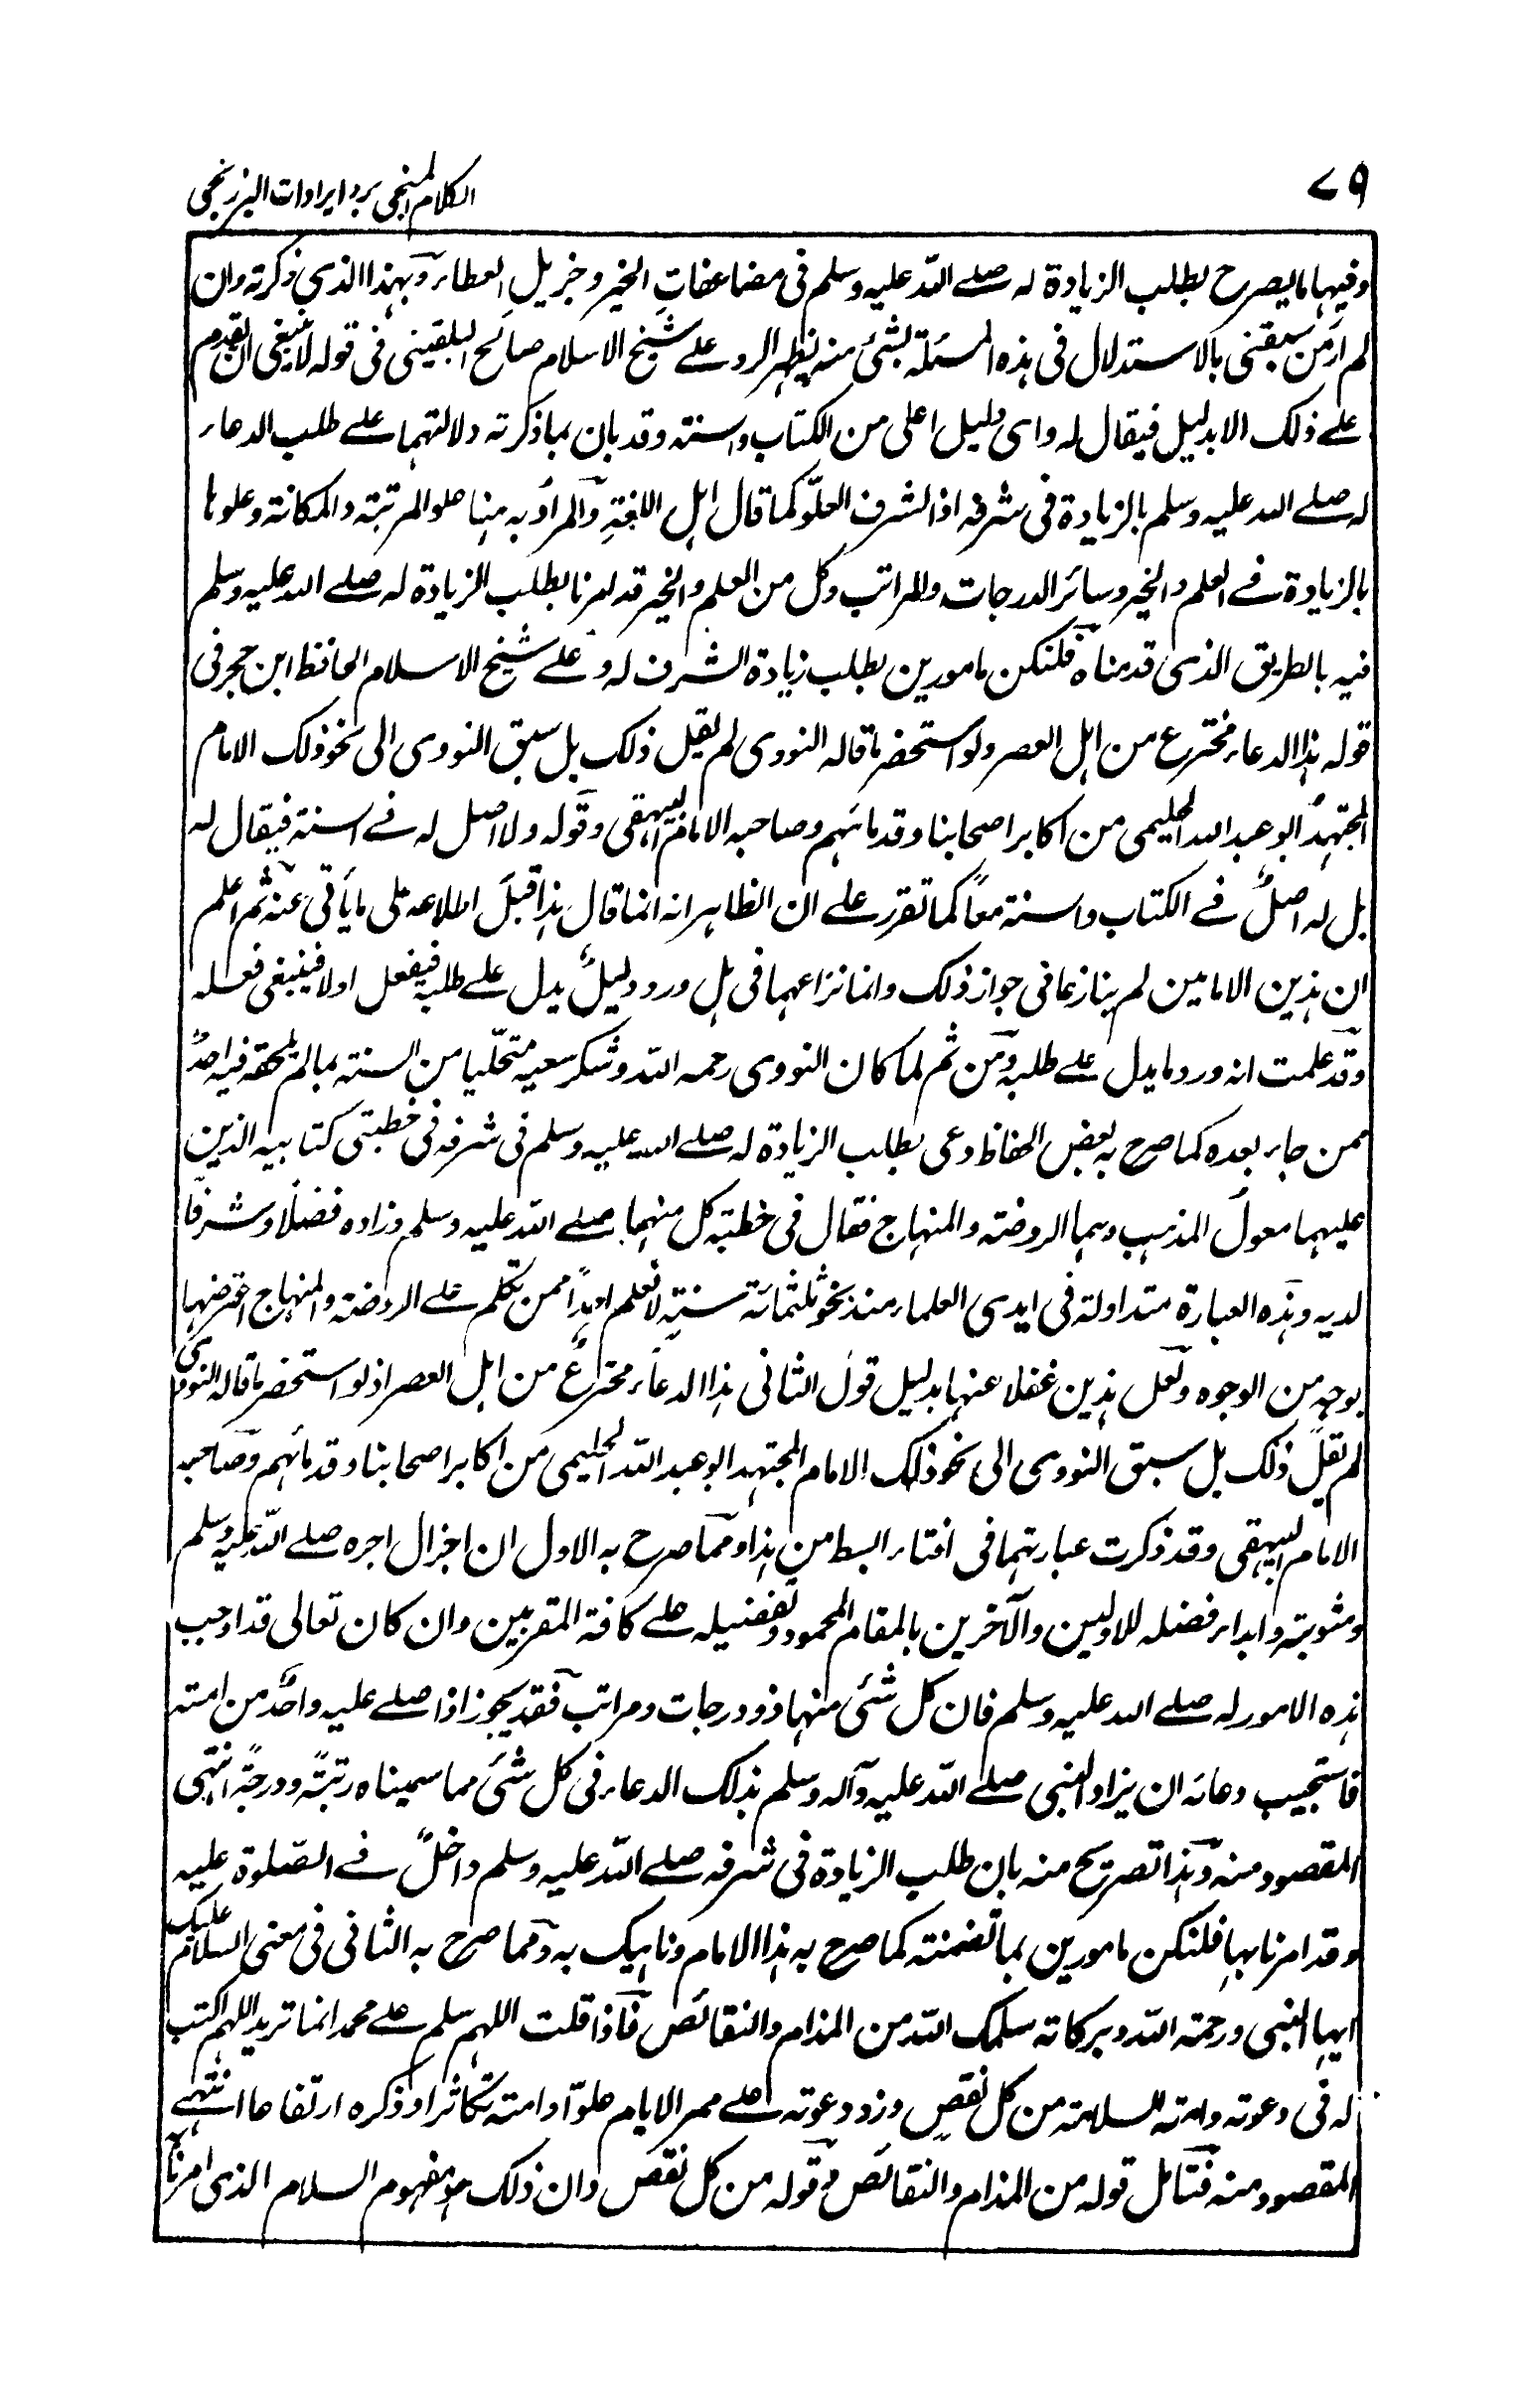 ٧٩ الكلام المنجى برد ايرادات البرزنجى
وفيها ما يصرح بطلب الزيادة له صلے اللّه عليه وسلم فى مضاعفاتِ الخير وجزيلِ العطاء وبهذا الذى ذكرته وان
لم ارَ من سبقنى بالاستدلال فى هذه المسئلة بشئ منه يظهر الرد علے شيخ الاسلام صالح البلقينى فى قوله لا ينبغى ان يقدم
علے ذلك الا بدليل فيقال له واى دليل اعلى من الكتاب والسنة وقد بان بما ذكرته دلالتهما علے طلب الدعاء
له صلے الله عليه وسلم بالزيادة فى شرفه اذ الشرف العلوّ كما قال اهل اللغةِ والمرادُ به هنا علو المرتبة والمكانة وعلوها
بالزيادة فے العلم والخير وسائر الدرجات والمراتب وكل من العلم والخير قد امرنا بطلب الزيادة له صلے الله عليه وسلم
فيه بالطريق الذى قدمناه فلنكن مامورين بطلب زيادة الشرف له وعلے شيخ الاسلام الحافظ ابن حجر فى
قوله هذا الدعاء مخترع من اهل العصر ولو استحضر ما قاله النووى لم يقل ذلك بل سبق النووى الى نحو ذلك الامام
المجتهدُ ابو عبد الله الحليمى من اكابر اصحابنا وقدمائهم وصاحبه الامام البيهقى وقوله ولا اصل له فے السنة فيقال له
بل له اصلٌ فے الكتاب والسنة معاً كما تقرر علے ان الظاهر انه انما قال هذا قبلَ اطلاعه على ما يأتى عنه ثم اعلم
ان هذين الامامين لم ينازعا فى جواز ذلك وانما نزاعهما فى هل ورد دليلٌ يدل علے طلبه فيفعل اولا فينبغى فعله
وقد علمت انه ورد ما يدل علے طلبه ومن ثم لما كان النووى رحمه اللّه وشكر سعيه متحلّيا من السنة بما لم يلحقه فيه احدٌ
ممن جاء بعده كما صرح به بعض الحفاظ دعى بطلب الزيادة له صلے الله عليه وسلم فى شرفه فى خطبتى كتابيه الذين
عليهما معولُ المذهب وهما الروضة والمنهاج فقال فى خطبة كل منهما صلے اللّه عليه وسلم وزاده فضلًا وشرفًا
لديه وهذه العبارة متداولة فى ايدى العلماء منذ نحو ثلثمائة سنةٍ لا نعلم احداً ممن تكلم علے الروضة والمنهاج اعترضها
بوجهٍ من الوجوه ولعل هذين غفلا عنها بدليل قول الثانى هذا الدعاء مخترعٌ من اهل العصر اذ لو استحضر ما قاله النووى
لم يقل ذلك بل سبق النووى الى نحو ذلك الامام المجتهد ابو عبد اللّه الحليمى من اكابر اصحابنا وقدمائهم وصاحبه
الامام البيهقى وقد ذكرت عبارتهما فى افتاء ابسط من هذا ومما صرح به الاول ان اجزال اجره صلے اللّه عليه وسلم
ومثوبته وابداء فضله للاولين والآخرين بالمقام المحمود وتفضيله علے كافة المقربين وان كان تعالى قد اوجب
هذه الامور له صلے الله عليه وسلم فان كل شئ منها ذو درجات ومراتب فقد يجوز اذا صلے عليه واحدٌ من امته
فاستجيب دعائه ان يزاد النبى صلے اللّه عليه وآله وسلم بذلك الدعاء فى كل شئ مما سميناه رتبةً ودرجةً انتهى
المقصود منه وهذا تصريح منه بان طلب الزيادة فى شرفه صلے اللّه عليه وسلم داخلٌ فے الصّلوة عليه
وقد امرنا بها فلنكن مامورين بما تضمنته كما صرح به هذا الامام وناهيك به ومما صرح به الثانى فى معنى السلام عليك
ايها النبى ورحمة اللّه وبركاته سلمك اللّه من المذام والنقائص فاذا قلت اللهم سلم علے محمد انما تريد اللهم اكتب
له فى دعوته وامته السلامة من كل نقصٍ وزد دعوته علے ممر الايام علوّا وامته تكاثرا وذكره ارتفاعا انتهے
المقصود منه فتأمل قوله من المذام والنقائص وقوله من كل نقص وان ذلك هو مفهوم السلام الذى امرنا